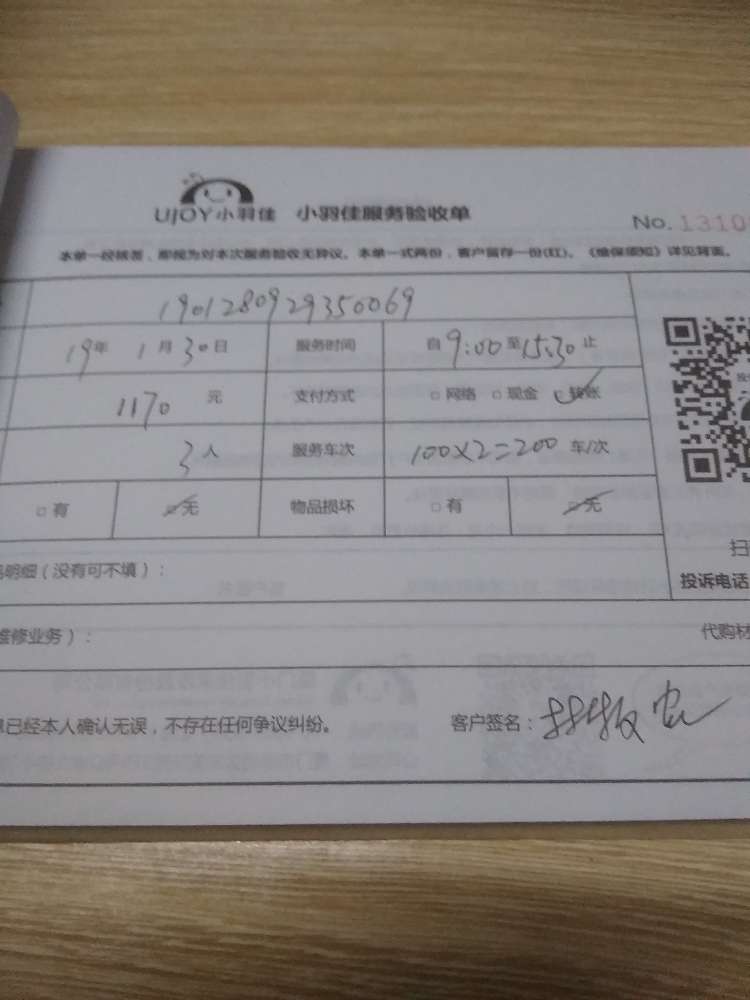 UJOY小羽佳 小羽佳服务验收单
No. 1310
本单一经核签，即视为对本次服务验收无异议。本单一式两份，客户留存一份(红)。《维保须知》详见背面。
1901280929350069
19年 1月 30日 服务时间 自 9:00 至 15:30 止
1170 元 支付方式 □网络 □现金 转账
3 人 服务车次 100X2=200 车/次
□有 无 物品损坏 □有 无
明细（没有可不填）：
扫
投诉电话
维修业务）： 代购材
已经本人确认无误，不存在任何争议纠纷。 客户签名：